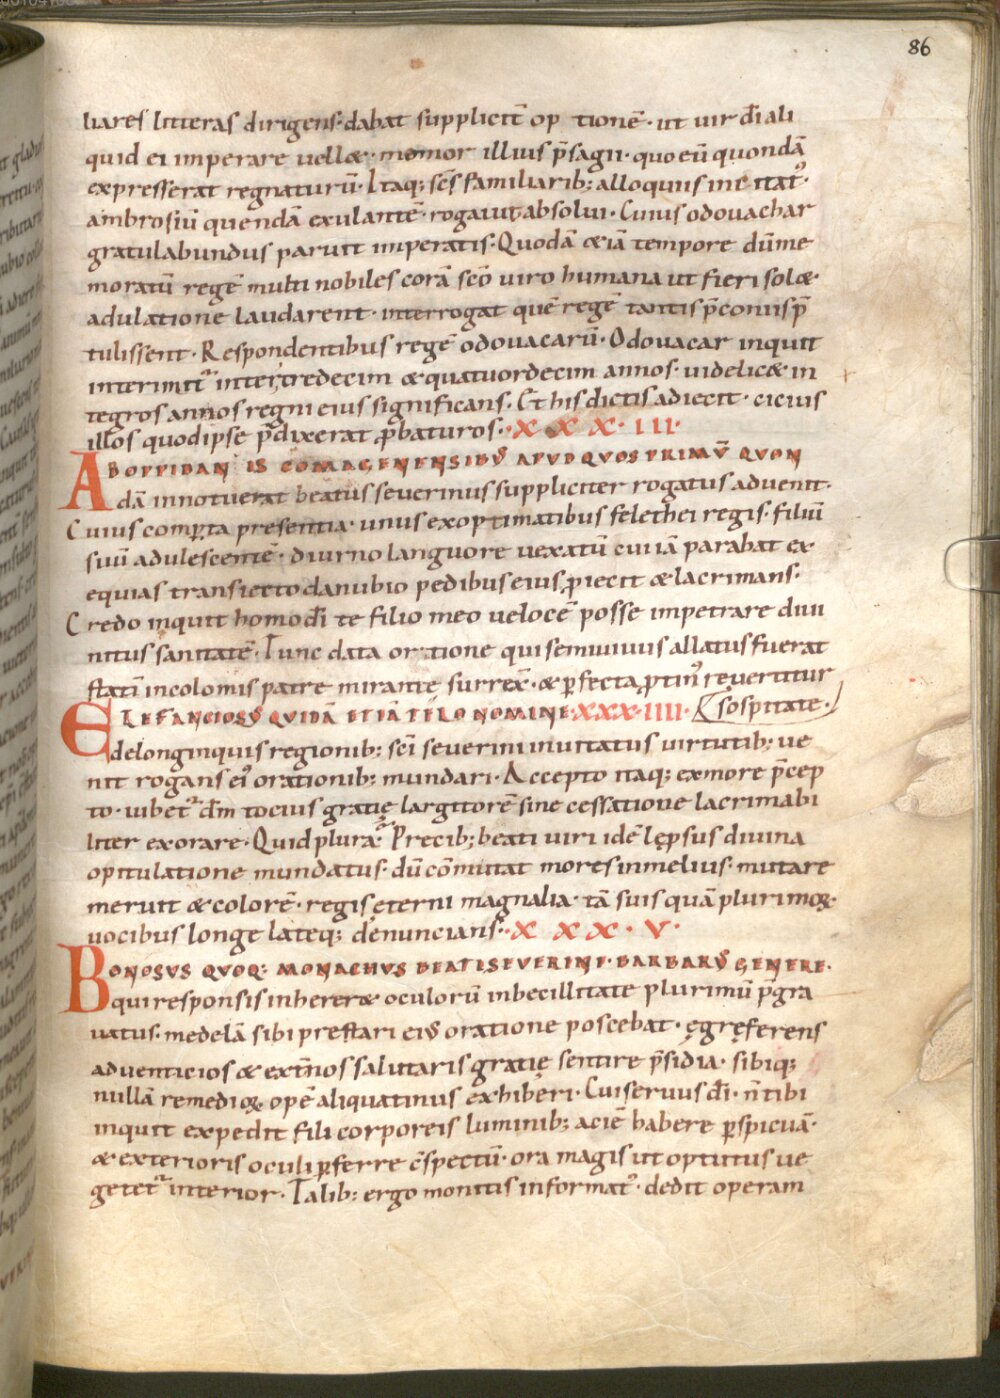 86
liares litteras dirigens· dabat supplicit̄ op tionē· ut vir d̄i ali
quid ei imperare vell&· memor illius p̄sagii· quo eū quondā
expresserat regnaturū· Itaq; sc̄s familiarib; alloquiis inuitat᾿·
ambrosiū quendā exulantē· rogauit absolui· Cuius odouachar
gratulabundus paruit imperatis· Quodā &iā tempore dū me
moratū regē multi nobiles corā sc̄o viro humana ut fieri sol&·
adulatione laudarent· interrogat quē regē tantis p̄coniis p̄
tulissent· Respondentibus regē odouacarū· Odouacar inquit
interimit᾿ inter tredecim & quatuordecim annos· videlic& in
tegros annos regni eius significans· Et his dictis adiecit· cicius
illos quod ipse p̄dixerat ꝓbaturos· XXXIII·
AB OPPIDANIS COMAGENENSIBꝰ APVD QVOS PRIMŪ QVON
dā innotuerat beatus severinus suppliciter rogatus advenit·
Cuius comꝑta presentia· unus ex optimatibus felethei regis· filiū
suū adulescentē· diurno languore vexatū cui iā parabat ex
equias transiecto danubio pedibus eius ꝓiecit & lacrimans·
Credo inquit homo d̄i te filio meo velocē posse impetrare divi
nitus sanitatē· Tunc data oratione qui semivivus allatus fuerat
statī incolomis patre mirante surrex̄· & ꝑfecta ꝓtin᾿ revertitur
ELEFANCIOSꝰ QVIDĀ ETIĀ TELO NOMINE· XXXIIII· sospitate·
de longinquis regionib; sc̄i severini invitatus virtutib; ve
nit rogans ei᾿ orationib; mundari· Accepto itaq; ex more p̄cep
to· iubet᾿ dn̄m tocius gratię largitorē sine cessatione lacrimabi
liter exorare· Quid plura· Precib; beati viri idē lępsus divina
opitulatione mundatus· dū cōmutat mores in melius· mutare
meruit & colorē· regis ęterni magnalia· tā suis quā plurimoꝝ·
vocibus longe lateq; denuncians· XXXV·
BONOSVS QVOQ; MONACHVS BEATI SEVERINI· BARBARꝰ GENERE·
qui responsis inherer& oculorū inbecillitate plurimū p̄gra
vatus· medelā sibi prestari eiꝰ oratione poscebat· ęgrę ferens
adventicios & ext̄nos salutaris gratię sentire p̄sidia· sibiq;
nullā remedioꝝ opē aliquatinus exhiberi· Cui servus d̄i· n̄ tibi
inquit expedit fili corporeis luminib; aciē habere ꝑspicuā·
& exterioris oculi ꝑferre c̄spectū· ora magis ut optutus ve
getet᾿ interior· Talib; ergo monitis informat᾿· dedit operam